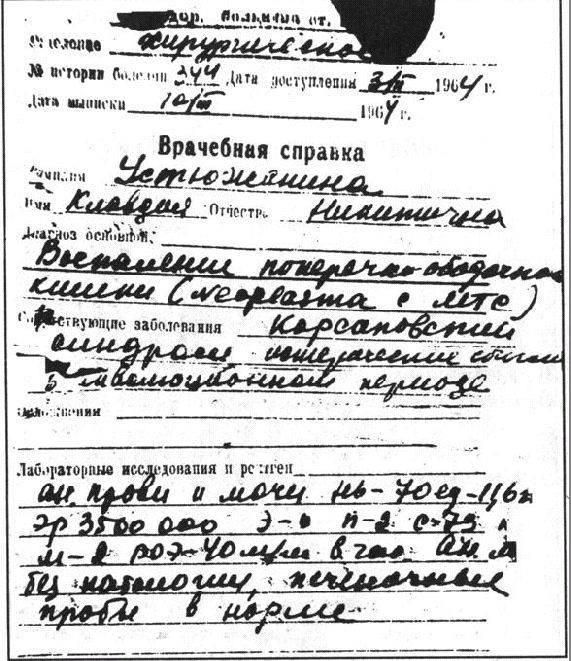 дор. больница ст.
Отделение хирургическое
№ истории болезни 344 Дата поступления 3/III 1964 г.
Дата выписки 10/III 1964 г.
Врачебная справка
Фамилия Устюжанина
Имя Клавдия Отчество Никитична
Диагноз основной:
Воспаление поперечно-ободочной
кишки (Neoplasma с мтс)
Сопутствующие заболевания Корсаковский
синдром истерический
в инволюционном периоде
Осложнения
Лабораторные исследования и рентген
ан. крови и мочи Нв-70ед-11,6
эр 3500 000 э- п-2 с-75 л
м-2 роэ-40 м/м в час. Ан. м
без патологии, печеночные
пробы в норме